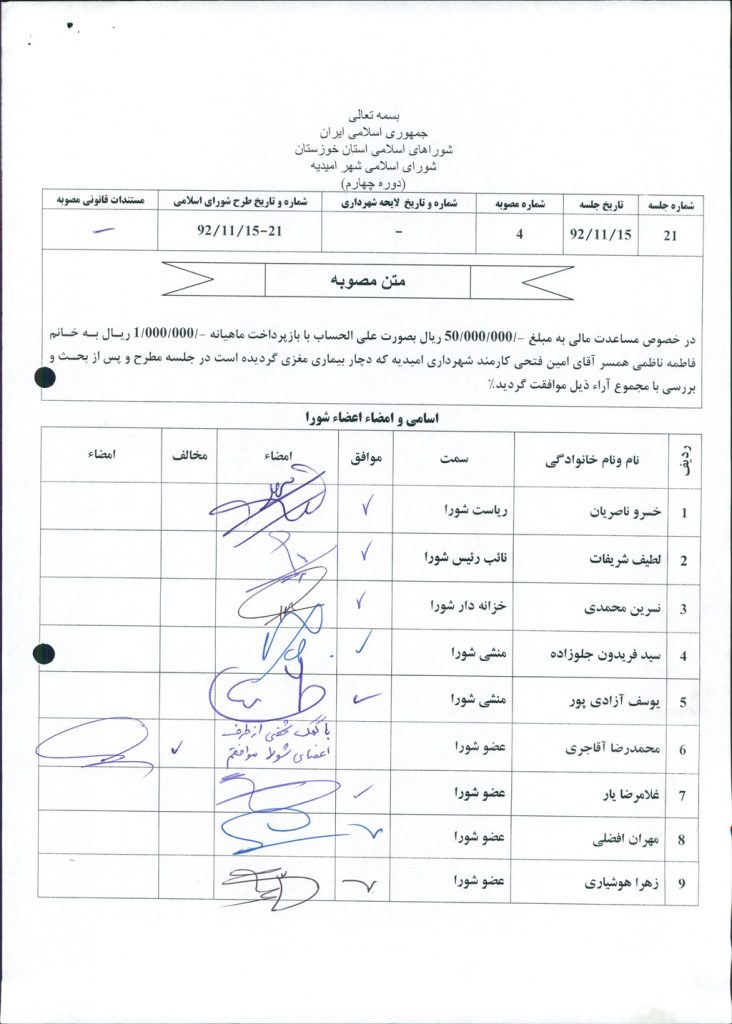 بسمه تعالی
جمهوری اسلامی ایران
شوراهای اسلامی استان خوزستان
شورای اسلامی شهر امیدیه
(دوره چهارم)
شماره جلسه تاریخ جلسه شماره مصوبه شماره و تاریخ لایحه شهرداری شماره و تاریخ طرح شورای اسلامی مستندات قانونی مصوبه
21 92/11/15 4 - 92/11/15-21 -
متن مصوبه
در خصوص مساعدت مالی به مبلغ -/50/000/000 ریال بصورت علی الحساب با بازپرداخت ماهیانه -/1/000/000 ریـال بـه خـانم
فاطمه ناظمی همسر آقای امین فتحی کارمند شهرداری امیدیه که دچار بیماری مغزی گردیده است در جلسه مطرح و پس از بحـث و
بررسی با مجموع آراء ذیل موافقت گردید.٪
اسامی و امضاء اعضاء شورا
ردیف نام ونام خانوادگی سمت موافق امضاء مخالف امضاء
1 خسرو ناصریان ریاست شورا ✓
2 لطیف شریفات نائب رئیس شورا ✓
3 نسرین محمدی خزانه دار شورا ✓
4 سید فریدون جلوزاده منشی شورا ✓
5 یوسف آزادی پور منشی شورا ✓
6 محمدرضا آقاجری عضو شورا با کمک شخصی از طرف ✓
اعضای شورا موافقم
7 غلامرضا یار عضو شورا ✓
8 مهران افضلی عضو شورا ✓
9 زهرا هوشیاری عضو شورا ✓